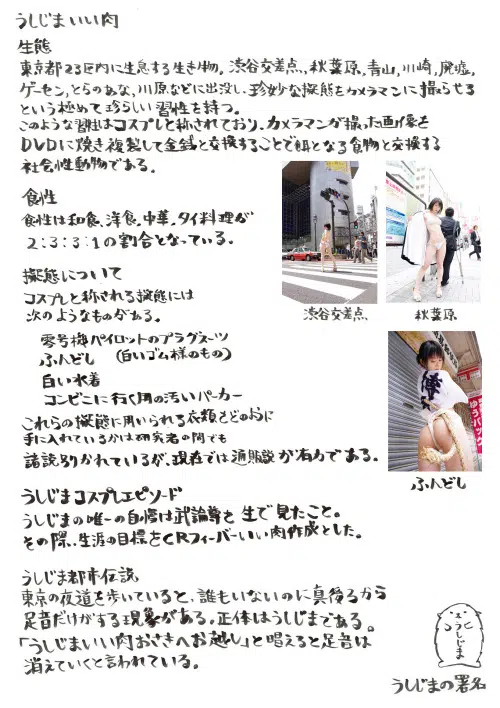 うしじまいい肉
生態
東京都23区内に生息する生き物。渋谷交差点、秋葉原、青山、川崎、廃墟、
ゲーセン、とらのあな、川原などに出没し、珍妙な擬態をカメラマンに撮らせる
という極めて珍らしい習性を持つ。
このような習性はコスプレと称されており、カメラマンが撮った画像を
DVDに焼き複製して金銭と交換することで餌となる食物と交換する
社会性動物である。
食性
食性は和食、洋食、中華、タイ料理が
2:3:3:1の割合となっている。
擬態について
コスプレと称される擬態には
次のようなものがある。
零号機パイロットのプラグスーツ
ふんどし (白いゴム様のもの)
白い水着
コンビニに行く用の汚いパーカー
これらの擬態に用いられる衣類をどのように
手に入れているかは研究者の間でも
諸説別かれているが、現在では通販説が有力である。
渋谷交差点、
秋葉原
ゆうパック
ふんどし
うしじまコスプレエピソード
うしじまの唯一の自慢は武論尊を生で見たこと。
その際、生涯の目標をCRフィーバーいい肉作成とした。
うしじま都市伝説
東京の夜道を歩いていると、誰もいないのに真後ろから
足音だけがする現象がある。正体はうしじまである。
「うしじまいい肉おさきへお越し」と唱えると足音は
消えていくと言われている。
うしじま
うしじまの署名